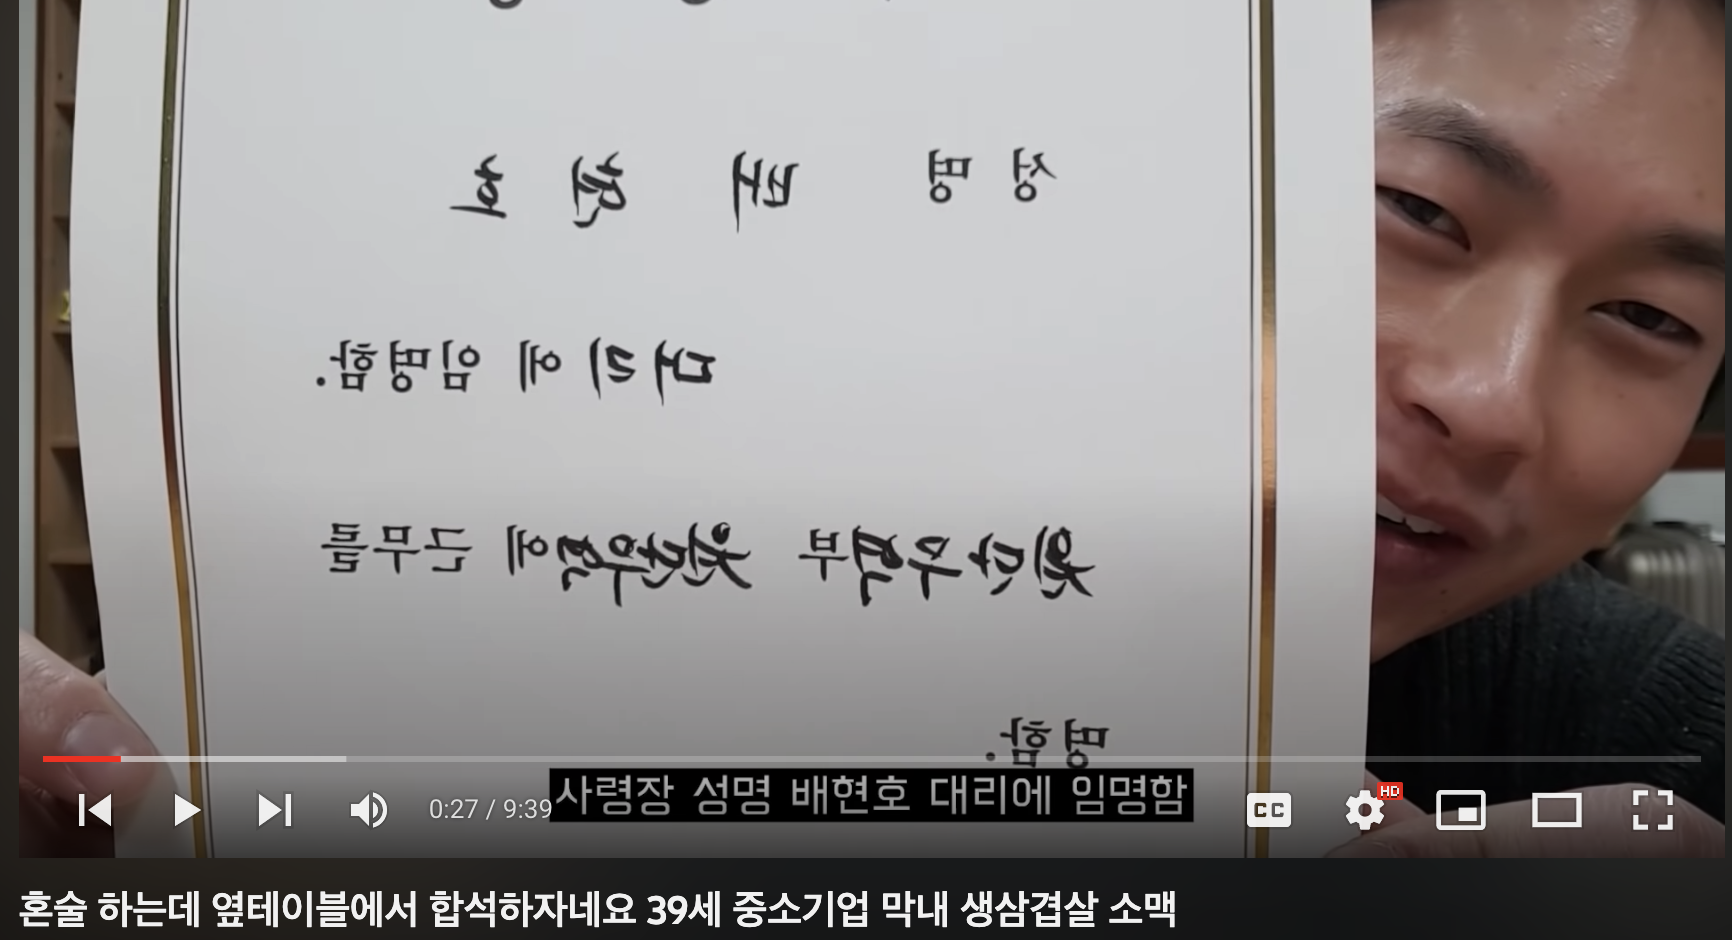 성 명 배 현 호
대 리 에 임명함.
부 에 근무를
명함.
사령장 성명 배현호 대리에 임명함
0:27 / 9:39
CC
HD
혼술 하는데 옆테이블에서 합석하자네요 39세 중소기업 막내 생삼겹살 소맥